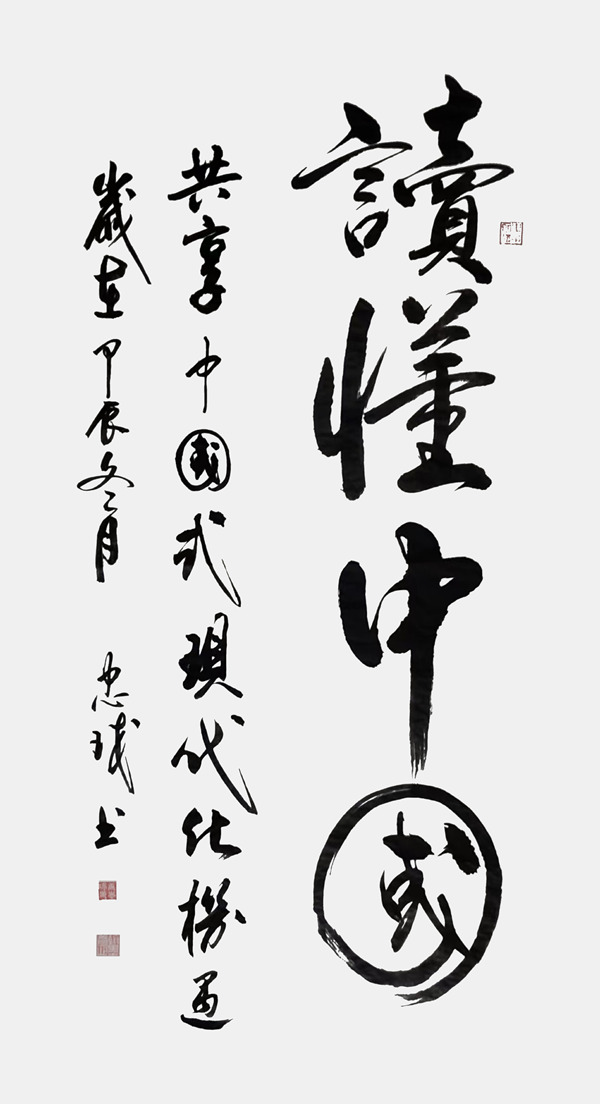 讀懂中國
共享中國式現代化機遇
歲在甲辰冬月 忠 书